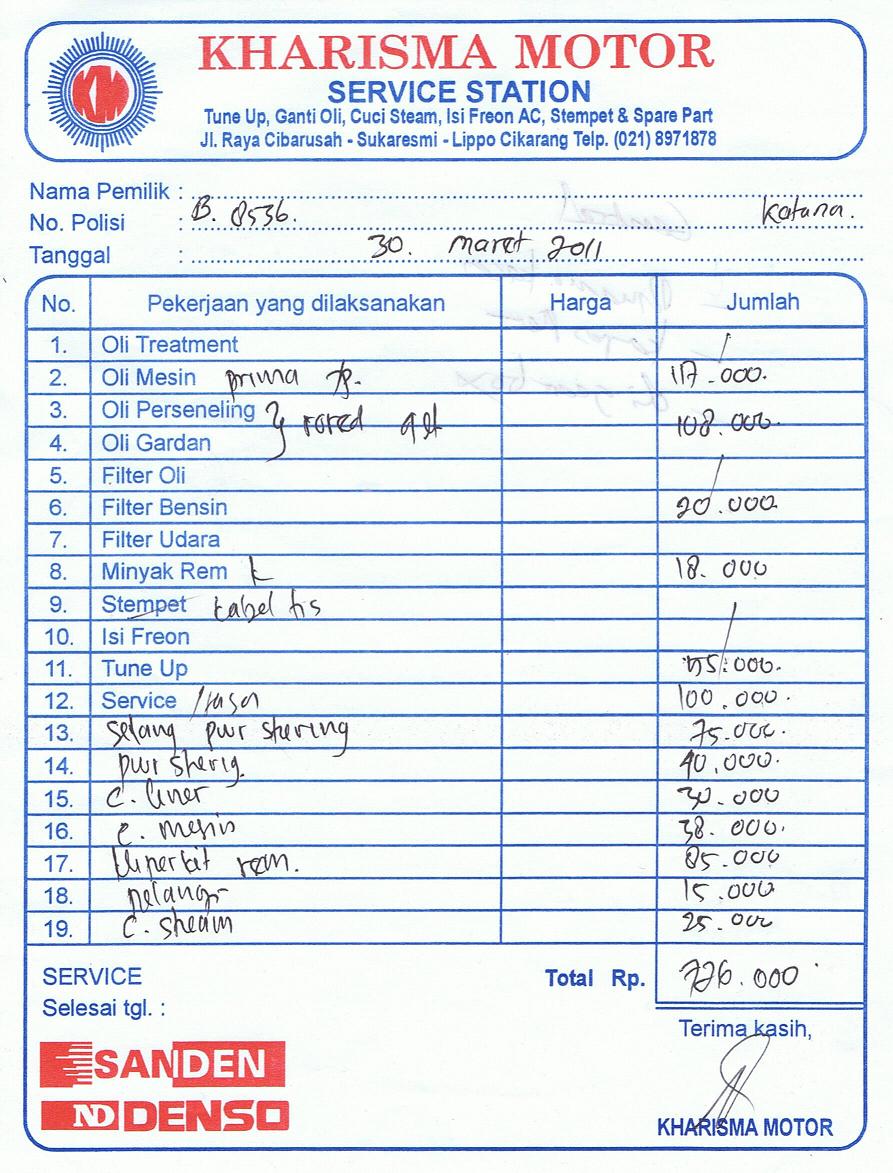 KM
KHARISMA MOTOR
SERVICE STATION
Tune Up, Ganti Oli, Cuci Steam, Isi Freon AC, Stempet & Spare Part
Jl. Raya Cibarusah - Sukaresmi - Lippo Cikarang Telp. (021) 8971878
Nama Pemilik :
No. Polisi : B. 8536. Katana.
Tanggal : 30. maret 2011
No. Pekerjaan yang dilaksanakan Harga Jumlah
1. Oli Treatment /
2. Oli Mesin prima 117.000.
3. Oli Perseneling } rored
4. Oli Gardan 108.000.
5. Filter Oli /
6. Filter Bensin 20.000
7. Filter Udara
8. Minyak Rem 18.000
9. Stempet kabel
10. Isi Freon /
11. Tune Up 55.000.
12. Service /Jasa 100.000.
13. Selang pwr stering 75.000.
14. pwr sterig. 40.000.
15. C. liner 30.000
16. C. mesin 38.000.
17. rem. 85.000
18. 15.000
19. C. steam 25.000
SERVICE Total Rp. 726.000
Selesai tgl. :
Terima kasih,
SANDEN
ND DENSO
KHARISMA MOTOR